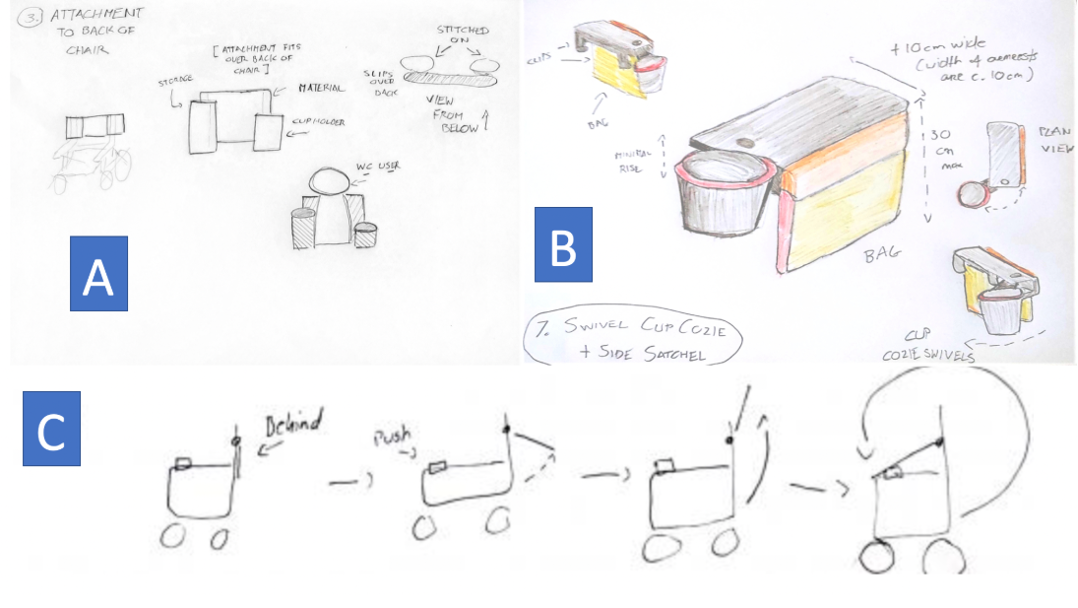 3. ATTACHMENT
TO BACK OF
CHAIR
[ATTACHMENT FITS
OVER BACK OF
CHAIR]
STORAGE
MATERIAL
CUPHOLDER
STITCHED
ON
SLIPS
OVER
BACK
VIEW
FROM
BELOW
WC USER
A
CLIPS
BAG
+10cm wide
(width of armrests
are c. 10cm)
MINIMAL
RISE
30
cm
max
PLAN
VIEW
B
BAG
7. SWIVEL CUP COZIE
+ SIDE SATCHEL
CUP
COZIE SWIVELS
C
Behind
Push